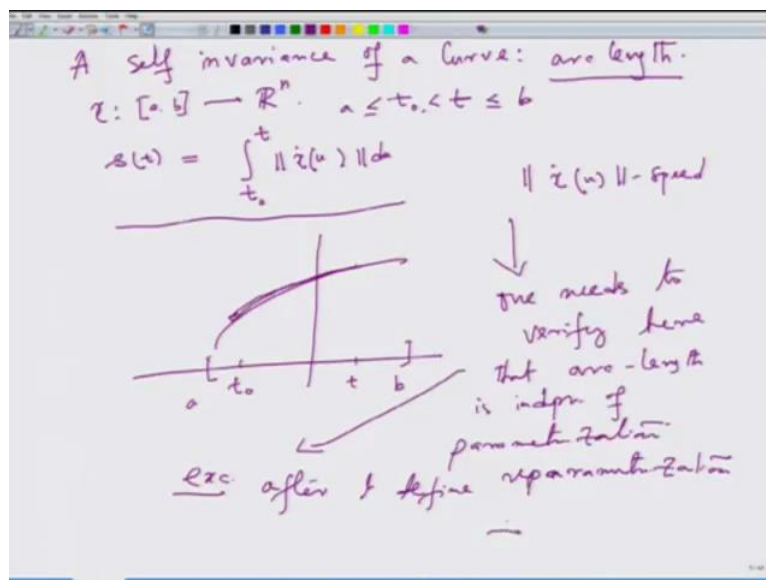 A self invariance of a Curve: arc length.
γ: [a, b] → ℝⁿ. a ≤ t₀ < t ≤ b
s(t) = ∫_{t₀}^{t} ‖γ̇(u)‖du
‖γ̇(u)‖ - speed
one needs to
verify here
that arc-length
is indpn. of
parametrization
a t₀ t b
exc. after I define reparametrization